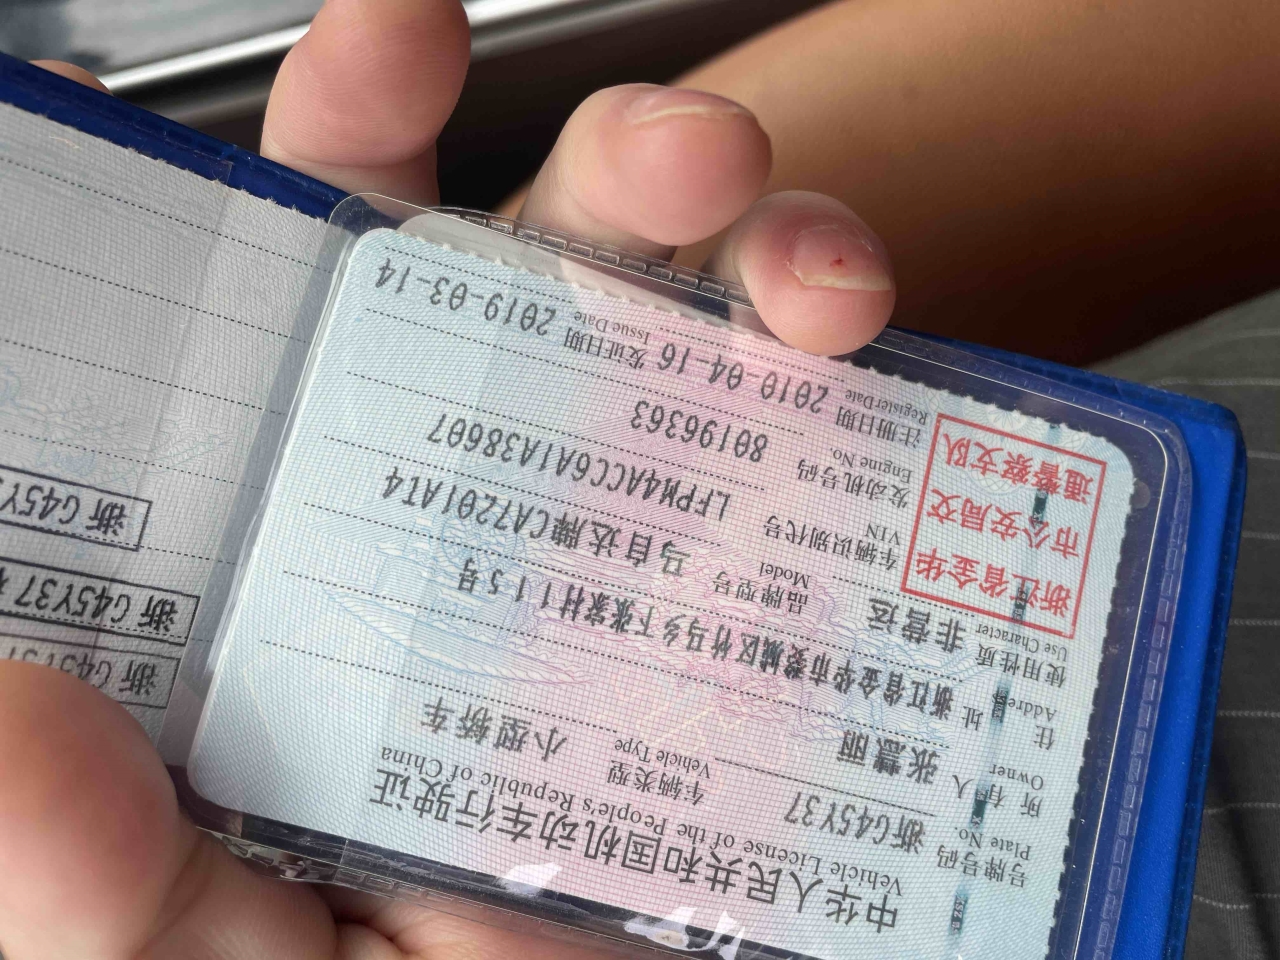 中华人民共和国机动车行驶证
Vehicle License of the People's Republic of China
号牌号码 浙G45Y37 车辆类型 小型轿车
Plate No. Vehicle Type
所有人 张慧丽
Owner
住址 浙江省金华市婺城区竹马乡下张家村115号
Address
使用性质 非营运 品牌型号 马自达牌CA7201AT4
Use Character Model
浙江省金华
市公安局交
通警察支队
车辆识别代号 LFPM4ACC6A1A38607
VIN
发动机号码 80196363
Engine No.
注册日期 2010-04-16 发证日期 2019-03-14
Register Date Issue Date
浙G45Y37
浙G45Y